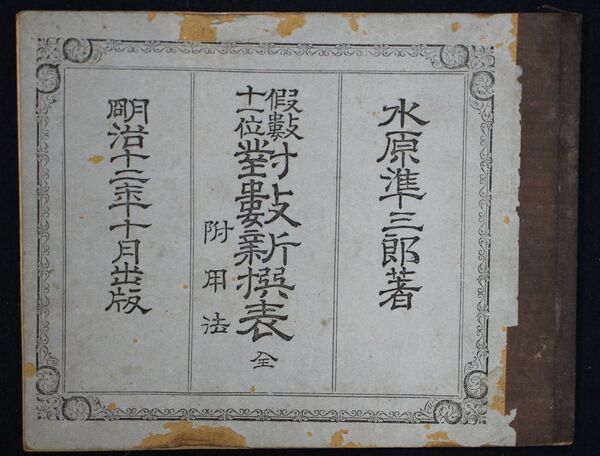 水原準三郎著
假數十一位對數新撰表 全
附用法
明治十二年十月出版